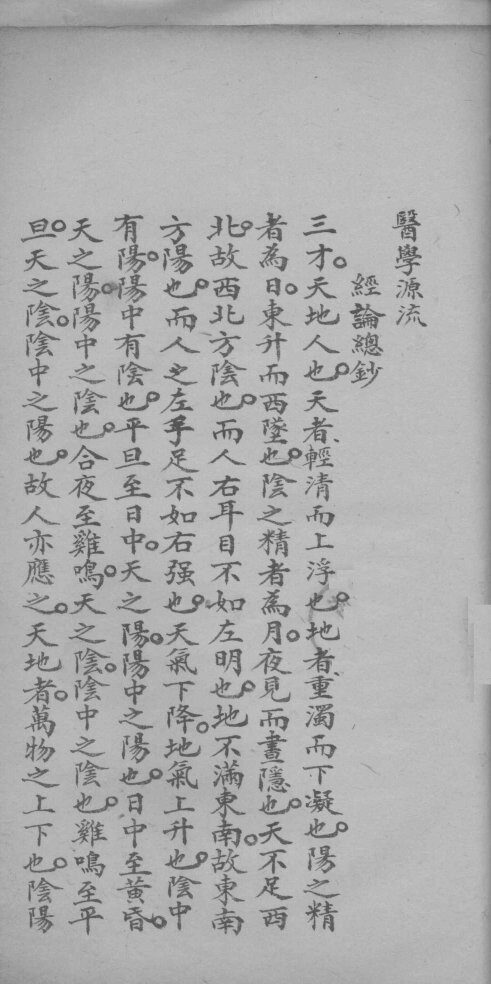 醫學源流
經論總鈔
三才。天地人也。天者、輕清而上浮也。地者、重濁而下凝也。陽之精
者為日。東升而西墜也。陰之精者為月。夜見而晝隱也。天不足西
北。故西北方陰也。而人右耳目不如左明也。地不滿東南。故東南
方陽也。而人之左手足不如右强也。天氣下降。地氣上升也。陰中
有陽。陽中有陰也。平旦至日中。天之陽。陽中之陽也。日中至黃昏。
天之陽。陽中之陰也。合夜至雞鳴。天之陰。陰中之陰也。雞鳴至平
旦。天之陰。陰中之陽也。故人亦應之。天地者。萬物之上下也。陰陽